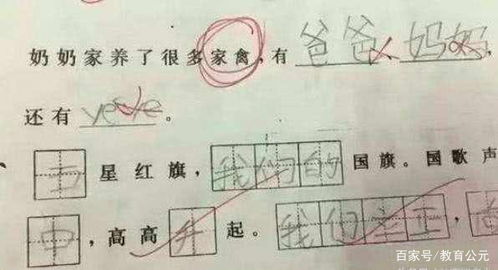 奶奶家养了很多家禽,有爸爸、妈妈,
还有yeye。
五星红旗,我们的国旗。国歌声
中,高高升起。我们立正,
百家号/教育公元